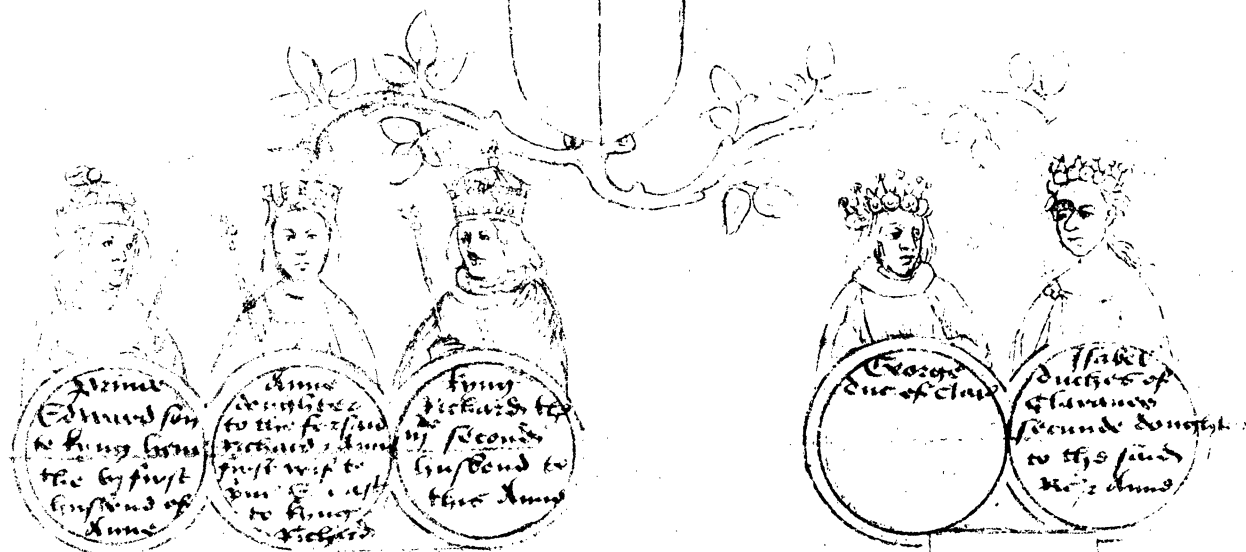 prince
Edward son
to kyng henri
the vj first
husbond of
Anne
Anne
doughter
to the forsaid
Richard & Anne
first wif to
last
to kyng
Richard
kyng
Richard the
iij second
husbond to
this Anne
George
duc of Clar
Isabel
duches of
Clarance
secunde doughte
to the said
Ric & Anne